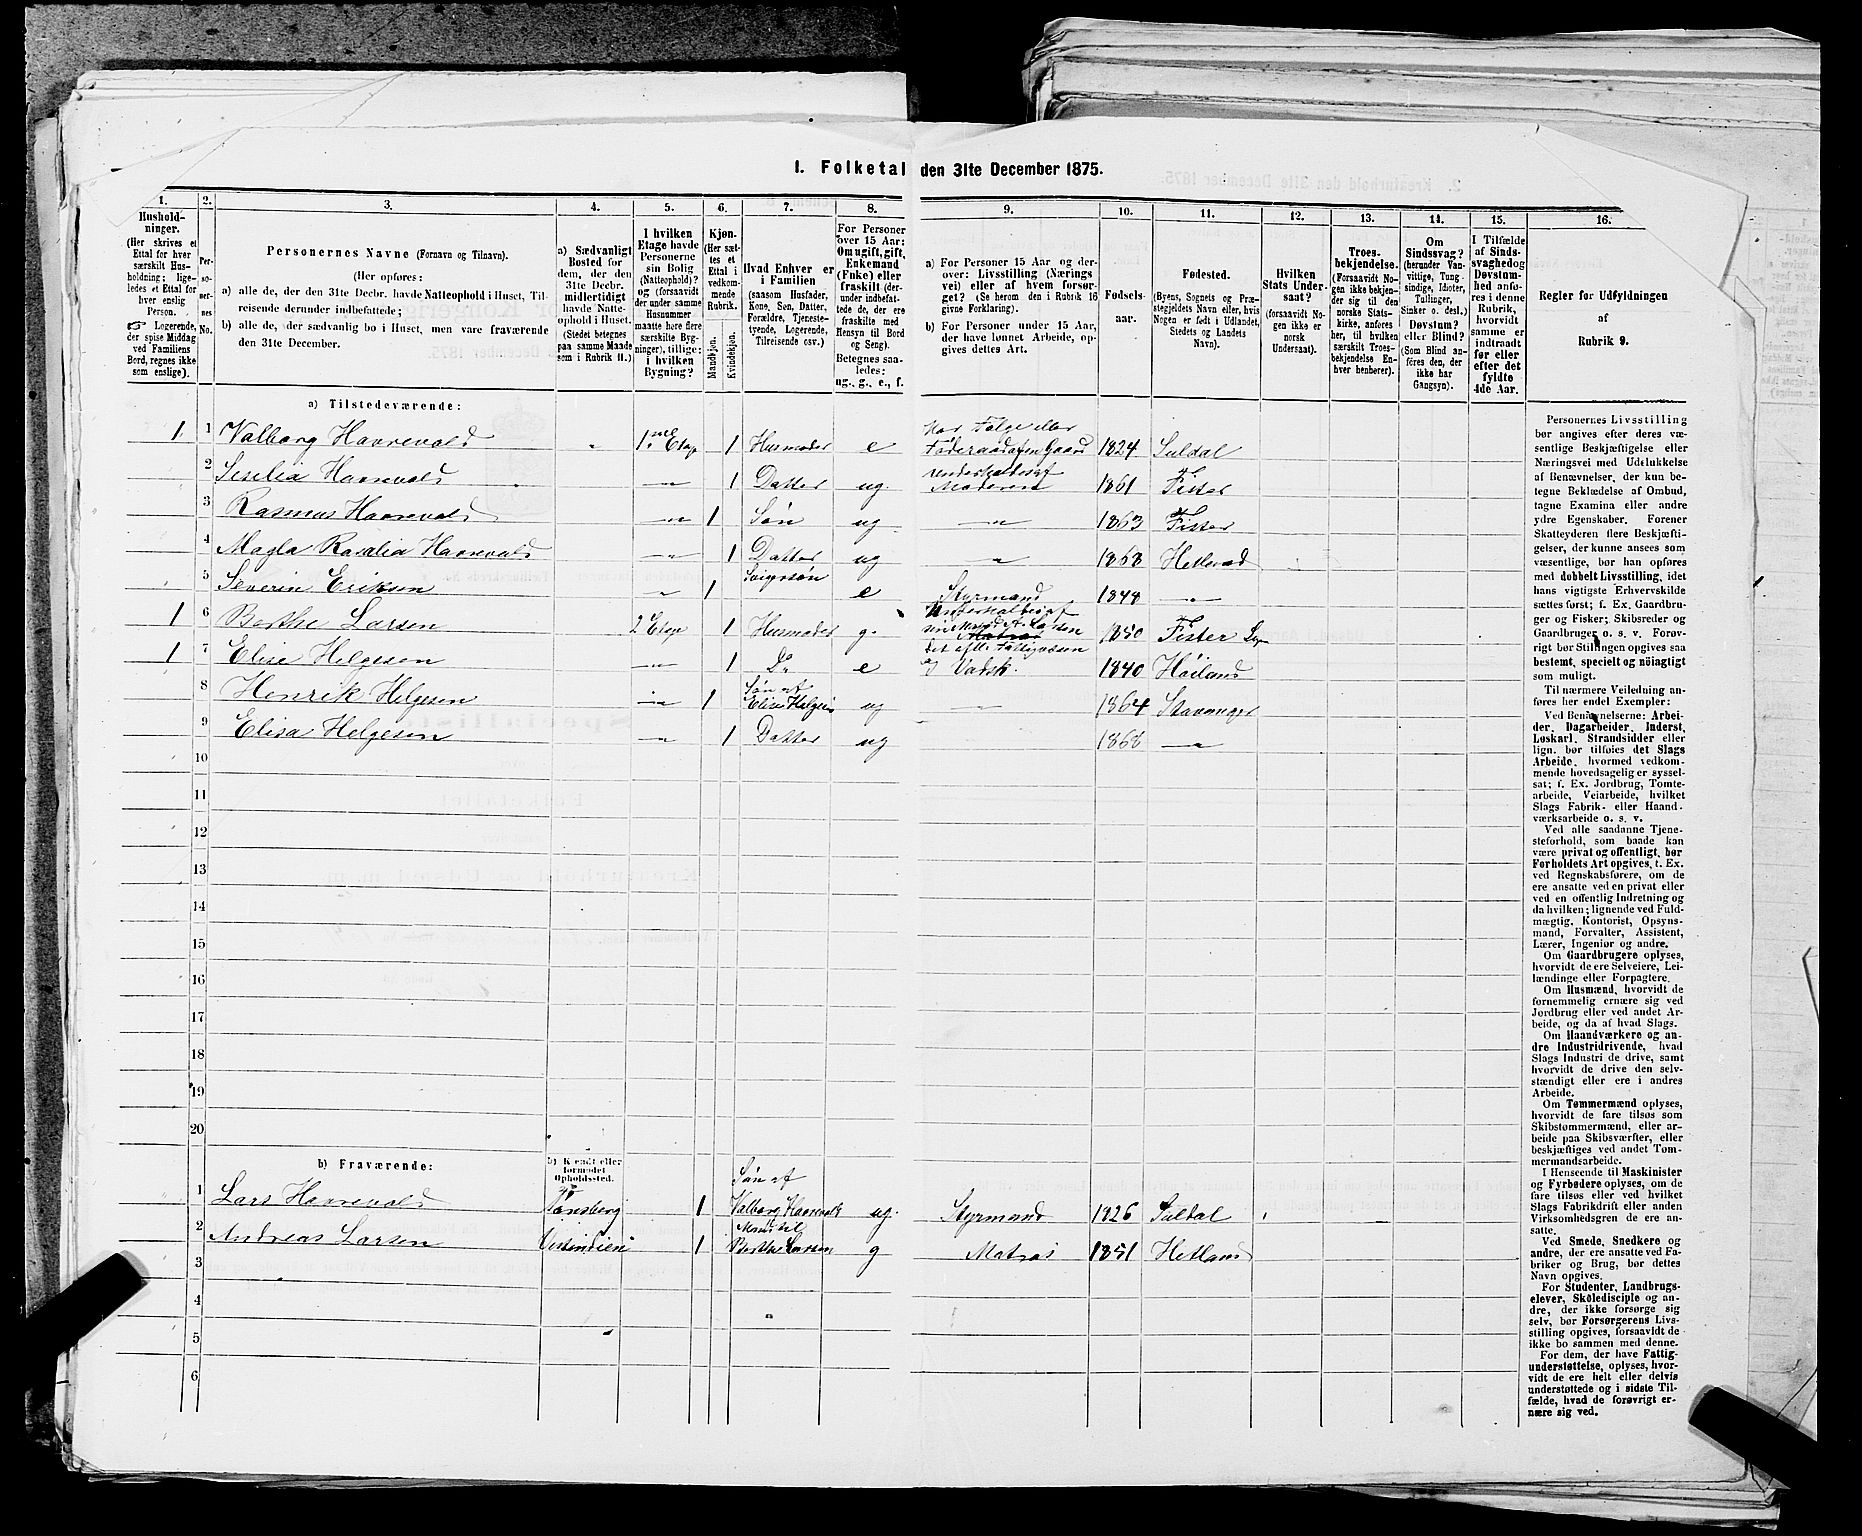 1. Folketal den 31te December 1875.
1. 2. 3. 4. 5. 6. 7. 8. 9. 10. 11. 12. 13. 14. 15. 16.
Hushold-
ninger.
(Her skrives et
Ettal for hver
særskilt Hus-
holdning; lige-
ledes et Ettal for
hver enslig
Person.
☞ Logerende,
der spise Middag
ved Familiens
Bord, regnes ikke
som enslige).
Per-
so-
ner-
nes
No.
Personernes Navne (Fornavn og Tilnavn).
(Her opføres:
a) alle de, der den 31te Decbr. havde Natteophold i Huset, Til-
reisende derunder indbefattede;
b) alle de, der sædvanlig bo i Huset, men vare fraværende
den 31te December.
a) Sædvanligt
Bosted for
dem, der den
31te Decbr.
midlertidigt
havde Natte-
ophold i Huset.
(Stedet betegnes
paa samme Maade
som i Rubrik 11.)
I hvilken
Etage havde
Personerne
sin Bolig
(Natteophold)?
og (forsaavidt
der under samme
Husnummer
maatte høre flere
særskilte Byg-
ninger), tillige:
i hvilken
Bygning?
Kjøn.
(Her sæt-
tes et
Ettal i
vedkom-
mende
Rubrik.
Mandkjøn.
Kvindekjøn.
Hvad Enhver er
i Familien
(saasom Husfader,
Kone, Søn, Datter,
Forældre, Tjeneste-
tyende, Logerende,
Tilreisende osv.)
For Personer
over 15 Aar:
Om ugift, gift,
Enkemand
(Enke) eller
fraskilt (der-
under indbefat-
tede de, der ere
fraskilte med
Hensyn til Bord
og Seng).
Betegnes saa-
ledes:
ug., g., e., f.
a) For Personer 15 Aar og der-
over: Livsstilling (Nærings
vei) eller af hvem forsør-
get? (Se herom den i Rubrik 16
givne Forklaring).
b) For Personer under 15 Aar,
der have lønnet Arbeide, op-
gives dettes Art.
Fødsels-
aar.
Fødested.
(Byens, Sognets og Præ-
stegjeldets Navn eller, hvis
Nogen er født i Udlandet,
Stedets og Landets
Navn).
Hvilken
Stats Under-
saat?
(forsaavidt No-
gen ikke er
norsk
Undersaat).
Troes-
bekjendelse.
(Forsaavidt No-
gen ikke bekjen-
der sig til den
norske Stats-
kirke, anføres
her, til hvilken
særskilt Troes-
bekjendelse En-
hver henhører).
Om
Sindssvag?
(herunder Van-
vittige, Idioter,
Tullinger,
Sinker o. desl.)
Døvstum?
eller Blind?
(Som Blind an-
føres den, der
ikke har
Gangsyn).
I Tilfælde
af Sinds-
svaghed og
Døvstum-
hed anfø-
res i denne
Rubrik,
hvorvidt
samme er
indtraadt
før eller
efter det
fyldte
4de Aar.
Regler for Udfyldningen
af
Rubrik 9.
a) Tilstedeværende:
1 1 Valborg Haavevald 1ste Etage 1 Husmoder e Har Følge eller Føderaad af en Gaard 1824 Suldal
2 Seselia Haavevald " 1 Datter ug. Moderen 1861 Fister
3 Rasmus Haavevald " 1 Søn ug " 1863 Fister
4 Magla Rasalia Haavevald " 1 Datter ug " 1868 Hetland
5 Severin Eriksen " 1 Svigersøn e Styrmand 1848 "
1 6 Berthe Larsen 2 Etage 1 Husmoder g. 1850 Fister
1 7 Elise Helgesen " 1 Do e og Vadsk. 1840 Høiland
8 Henrik Helgesen " 1 Søn af Elise Helgesen ug " 1864 Stavanger
9 Elisa Helgesen " 1 Datter ug 1868 "
10
11
12
13
14
15
16
17
18
19
20
b) Fraværende:
b) Kjendt eller
formodet
Opholdssted.
1 Lars Haavevald Tønsberg 1 Søn af Valborg Haavevald ug. Styrmand 1826 Suldal
2 Andreas Larsen Vestindien 1 Mand til Berthe Larsen g Matros 1851 Hetland
3
4
5
6
Personernes Livsstilling
bør angives efter deres væ-
sentlige Beskjæftigelse eller
Næringsvei med Udelukkelse
af Benævnelser, der kun be-
tegne Beklædelse af Ombud,
tagne Examina eller andre
ydre Egenskaber. Forener
Skatteyderen flere Beskjæfti-
gelser, der kunne ansees som
væsentlige, bør han opføres
med dobbelt Livsstilling, idet
hans vigtigste Erhvervskilde
sættes først; f. Ex. Gaardbru-
ger og Fisker; Skibsreder og
Gaardbruger o. s. v. Forøv-
rigt bør Stillingen opgives saa
bestemt, specielt og nøiagtigt
som muligt.
Til nærmere Veiledning an-
føres her endel Exempler:
Ved Benævnelserne: Arbei-
der, Dagarbeider, Inderst,
Løskarl, Strandsidder eller
lign. bør tilføies det Slags
Arbeide, hvormed vedkom-
mende hovedsagelig er syssel-
sat; f. Ex. Jordbrug, Tomte-
arbeide, Veiarbeide, hvilket
Slags Fabrik- eller Haand-
værksarbeide o. s. v.
Ved alle saadanne Tjene-
steforhold, som baade kan
være privat og offentligt, bør
Forholdets Art opgives, f. Ex.
ved Regnskabsførere, om de
ere ansatte ved en privat eller
ved en offentlig Indretning og
da hvilken; lignende ved Fuld-
mægtig, Kontorist, Opsyns-
mand, Forvalter, Assistent,
Lærer, Ingeniør og andre.
Om Gaardbrugere oplyses,
hvorvidt de ere Selveiere, Lei-
lændinge eller Forpagtere.
Om Husmænd, hvorvidt de
fornemmelig ernære sig ved
Jordbrug eller ved andet Ar-
beide, og da af hvad Slags.
Om Haandværkere og an-
dre Industridrivende, hvad
Slags Industri de drive, samt
hvorvidt de drive den selv-
stændigt eller ere i andres
Arbeide.
Om Tømmermænd oplyses,
hvorvidt de fare tilsøs som
Skibstømmermænd, eller ar-
beide paa Skibsværfter, eller
beskjæftiges ved andet Tøm-
mermandsarbeide.
I Henseende til Maskinister
og Fyrbødere oplyses, om de
fare tilsøs eller ved hvilket
Slags Fabrikdrift eller anden
Virksomhedsgren de ere an-
satte.
Ved Smede, Snedkere og
andre, der ere ansatte ved Fa-
briker og Brug, bør dettes
Navn opgives.
For Studenter, Landbrugs-
elever, Skoledisciple og an-
dre, der ikke forsørge sig
selv, bør Forsørgerens Livs-
stilling opgives, forsaavidt de
ikke bo sammen med denne.
For dem, der have Fattig-
understøttelse, oplyses, hvor-
vidt de ere helt eller delvis
understøttede og i sidste Til-
fælde, hvad de forøvrigt er-
nære sig ved.